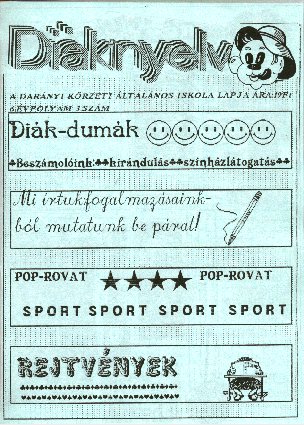 Diáknyelv
A DARÁNYI KÖRZETI ÁLTALÁNOS ISKOLA LAPJA ÁRA:19Ft
6.ÉVFOLYAM 3.SZÁM
Diák-dumák
Beszámolóink: kirándulás színházlátogatás
Mi írtuk fogalmazásaink-
ból mutatunk be párat!
POP-ROVAT POP-ROVAT
SPORT SPORT SPORT SPORT
REJTVÉNYEK